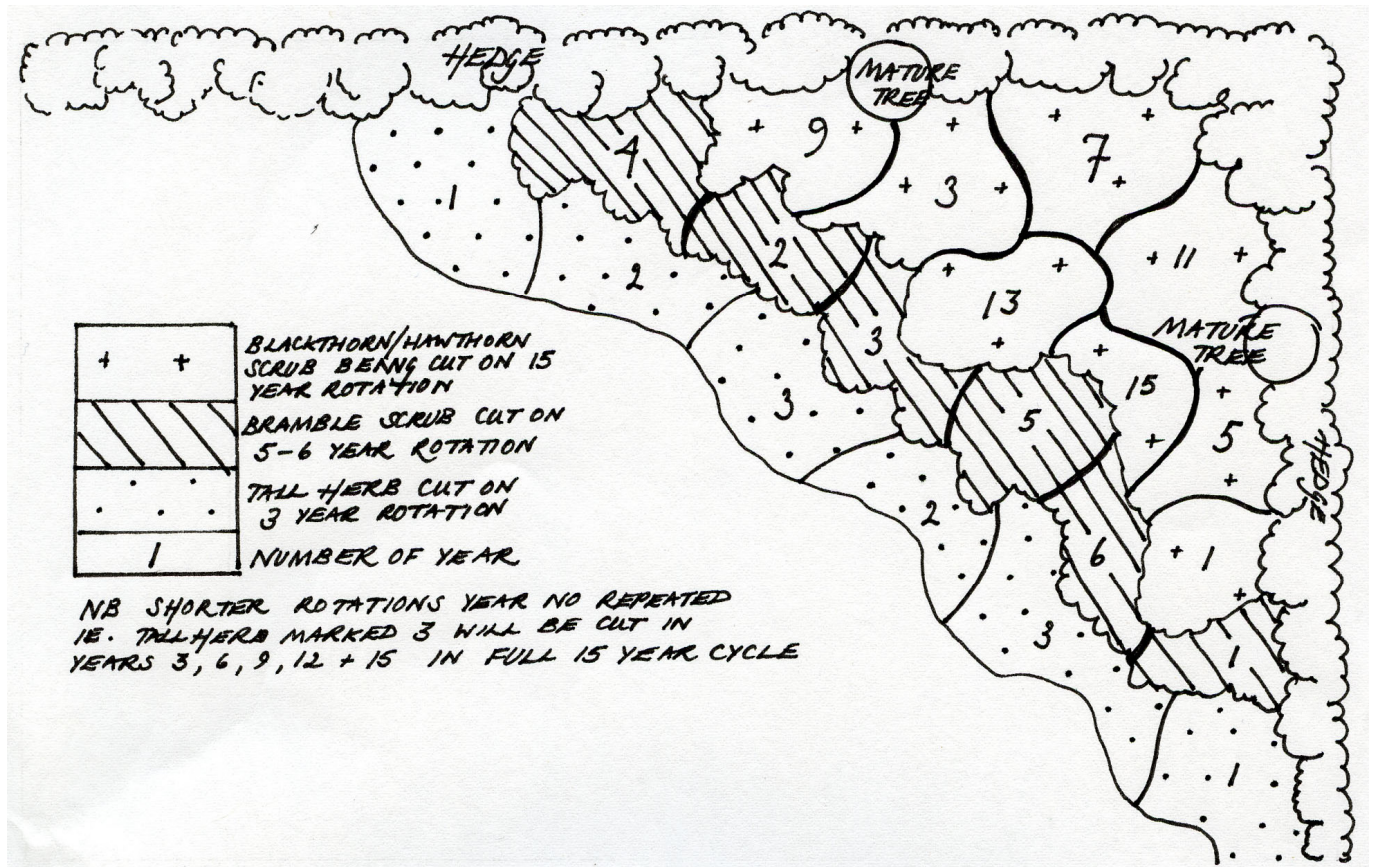 HEDGE
MATURE
TREE
9
7
4
3
1
11
2
2
13
MATURE
TREE
3
15
3
5
5
2
6
1
3
1
1
HEDGE
BLACKTHORN/HAWTHORN
SCRUB BEING CUT ON 15
YEAR ROTATION
BRAMBLE SCRUB CUT ON
5-6 YEAR ROTATION
TALL HERB CUT ON
3 YEAR ROTATION
1 NUMBER OF YEAR
NB SHORTER ROTATIONS YEAR NO REPEATED
IE. TALL HERB MARKED 3 WILL BE CUT IN
YEARS 3, 6, 9, 12 + 15 IN FULL 15 YEAR CYCLE